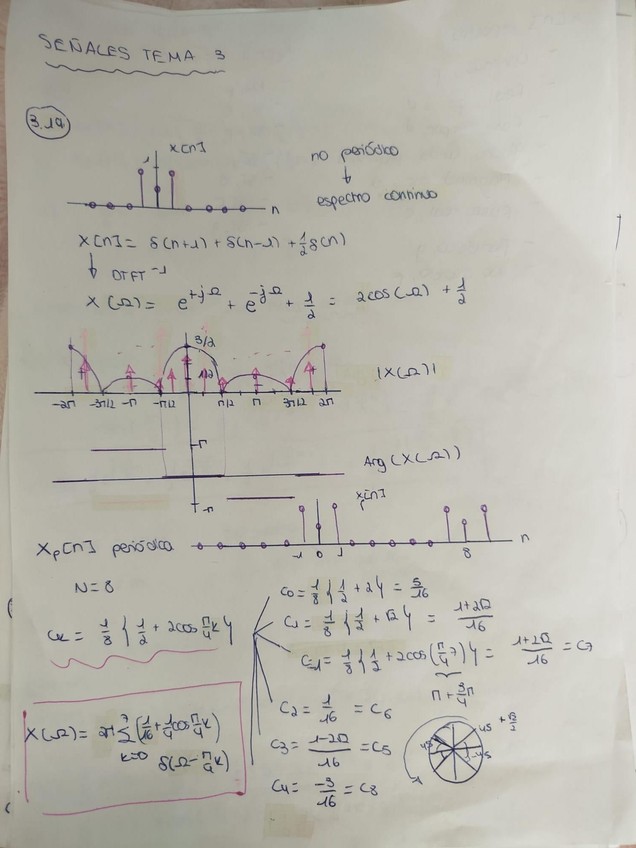 SEÑALES TEMA 3
3.19
1 x[n] n
no periódico
↓
espectro continuo
x[n] = δ(n+1) + δ(n-1) + 1/2 δ(n)
↓ DTFT⁻¹
X(Ω) = e^{+jΩ} + e^{-jΩ} + 1/2 = 2cos(Ω) + 1/2
3/2
1/2 |X(Ω)|
-2π -3π/2 -π -π/2 π/2 π 3π/2 2π
π
Arg(X(Ω))
-π
xp[n]
Xp[n] periódica -1 0 1 8 n
N=8
Ck = 1/8 { 1/2 + 2cos π/4 k }
C0 = 1/8 { 1/2 + 2 } = 5/16
C1 = 1/8 { 1/2 + √2 } = 1+2√2/16
C-1 = 1/8 { 1/2 + 2cos(π/4 7) } = 1+2√2/16 = C7
π + 3/4 π
C2 = 1/16 = C6
C3 = 1-2√2/16 = C5
C4 = -3/16 = C8
X(Ω) = 2π Σ_{k=0}^{7} (1/16 + 1/4 cos π/4 k)
δ(Ω - π/4 k)
45 + √2/2
45 -45